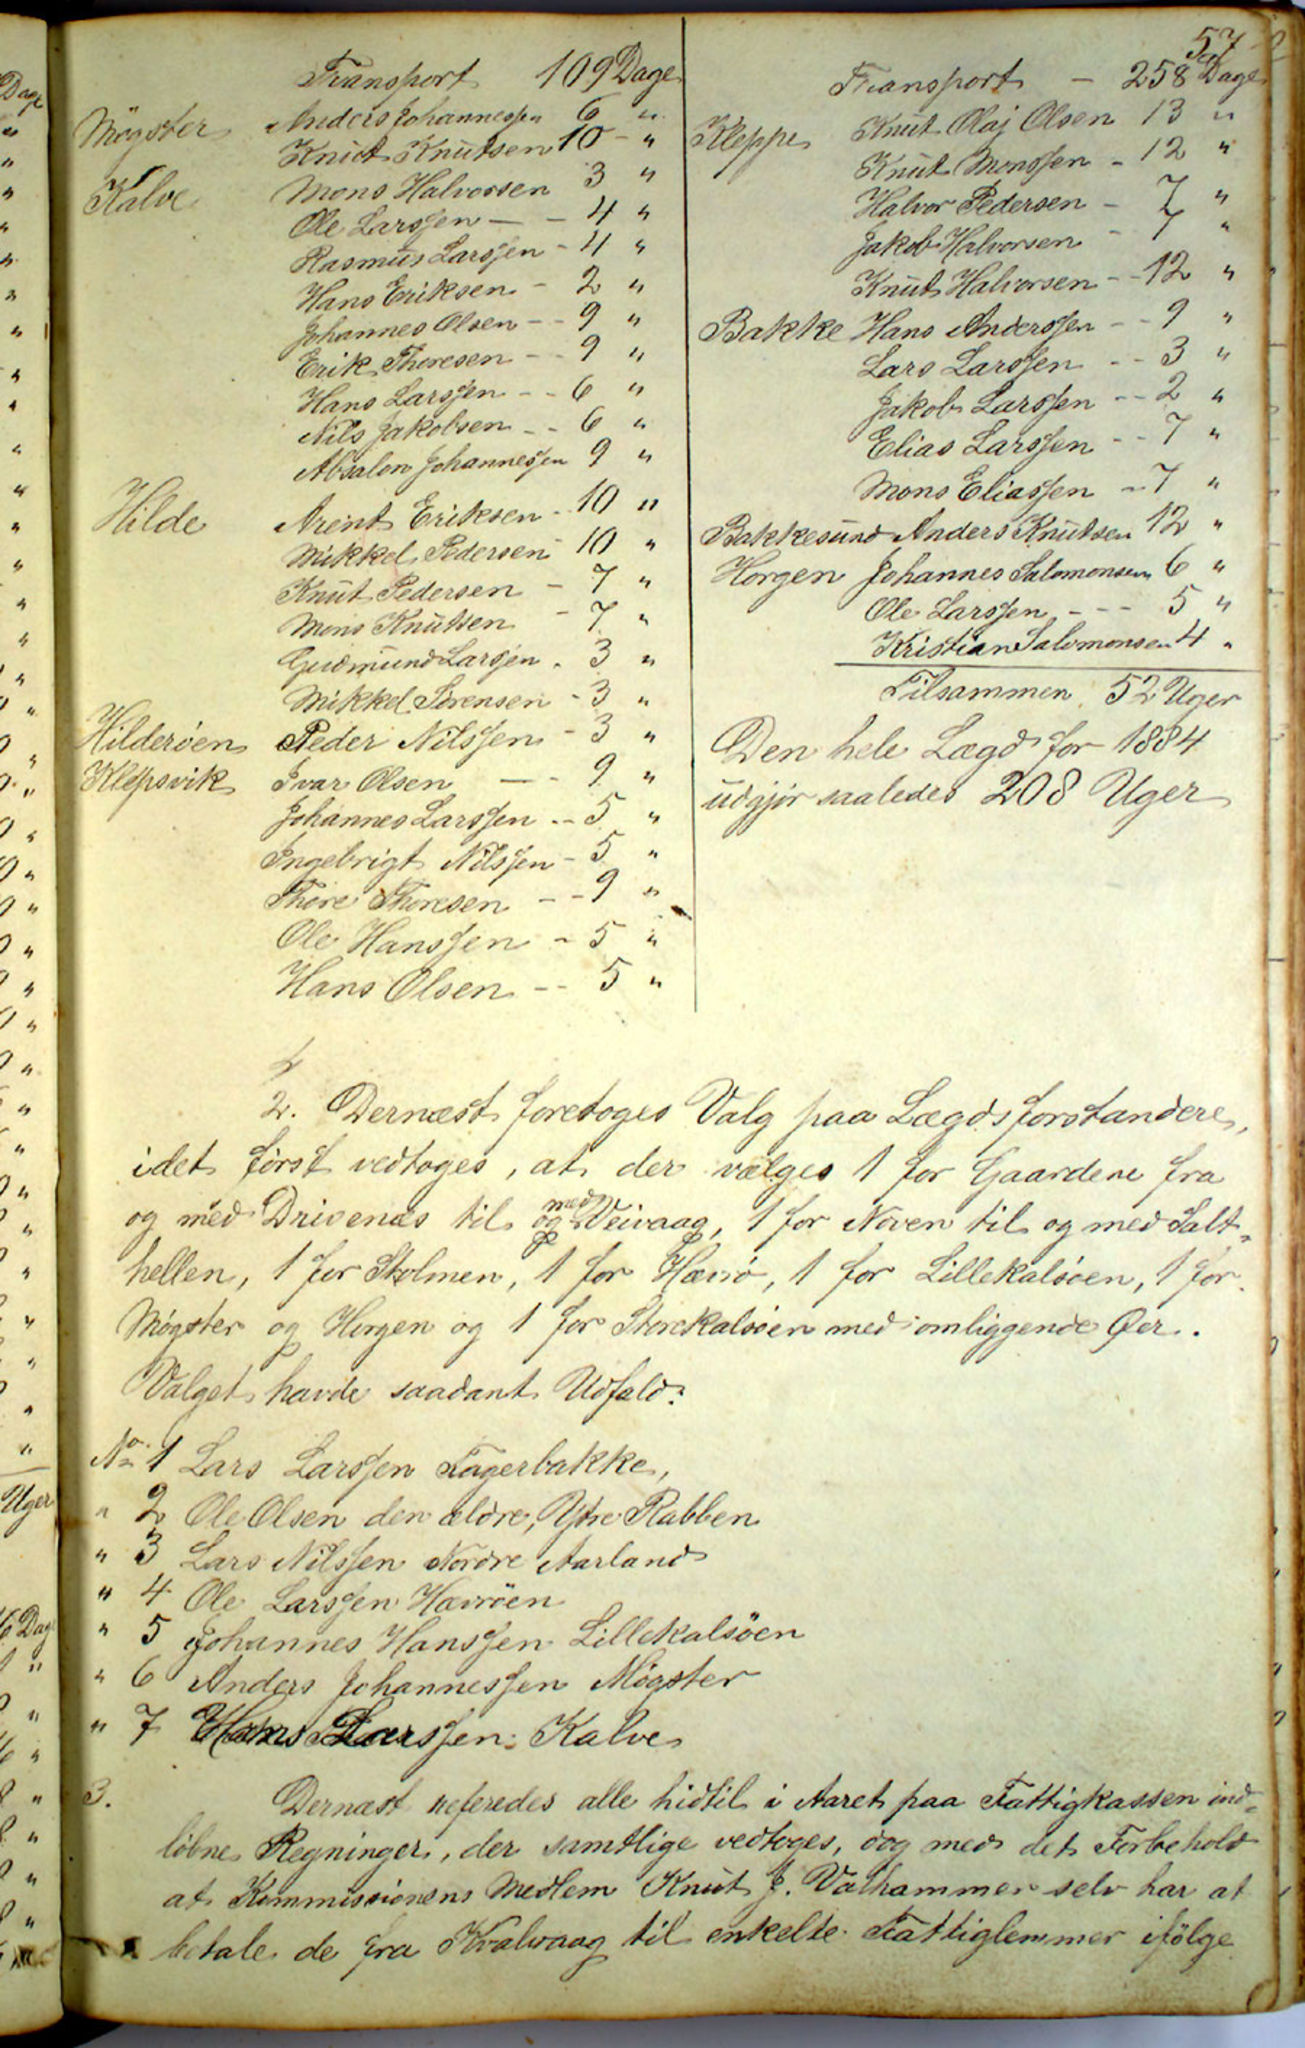 57
Transport 109 Dage
Møgster Anders Johannessen 6 "
Knut Knutsen 10 - "
Kalve Mons Halvorsen 3 "
Ole Larssen - - 4 "
Rasmus Larssen - 4 "
Hans Eriksen - 2 "
Johannes Olsen - - 9 "
Erik Thoresen - - 9 "
Hans Larssen - - 6 "
Nils Jakobsen - - 6 "
Absalon Johannessen 9 "
Hilde Arent Eriksen - 10 "
Mikkel Pedersen 10 "
Knut Pedersen - 7 "
Mons Knutsen - 7 "
Gudmund Larsen - 3 "
Mikkel Sørensen - 3 "
Hilderøen Peder Nilssen - 3 "
Klepsvik Ivar Olsen - - 9 "
Johannes Larssen - - 5 "
Ingebrigt Nilssen - 5 "
Thore Thoresen - - 9 "
Ole Hanssen - 5 "
Hans Olsen - - 5 "
Transport - 258 Dage
Kleppe Knut Olaj Olsen 13 "
Knut Monssen - 12 "
Halvor Pedersen - 7 "
Jakob Halvorsen - 7 "
Knut Halvorsen - - 12 "
Bakke Hans Anderssen - - 9 "
Lars Larssen - - 3 "
Jakob Larssen - - 2 "
Elias Larssen - - 7 "
Mons Eliassen - 7 "
Bakkesund Anders Knutsen 12 "
Horgen Johannes Salomonsen 6 "
Ole Larssen - - - 5 "
Kristian Salomonsen 4 "
Tilsammen 52 Uger
Den hele Lægd for 1884
udgjør saaledes 208 Uger
2. Dernæst foretoges Valg paa Lægdsforstandere,
idet først vedtoges, at der vælges 1 for Gaardene fra
og med Drivenes til og med Veivaag, 1 for Noven til og med Salt-
hellen, 1 for Stolmen, 1 for Hævrø, 1 for Lillekalsøen, 1 for
Møgster og Horgen og 1 for Storekalsøen med omliggende Øer.
Valget havde saadant Udfald:
No 1 Lars Larssen Fagerbakke,
" 2 Ole Olsen den ældre, Ytre Rabben
" 3 Lars Nilssen Nordre Aarland
" 4 Ole Larssen Hævrøen
" 5 Johannes Hanssen Lillekalsøen
" 6 Anders Johannessen Møgster
" 7 Hans Larssen Kalve
3. Dernæst refereredes alle hidtil i Aaret paa Fattigkassen ind-
løbne Regninger, der samtlige vedtoges, dog med det Forbehold
at Kommissionens Medlem Knut J. Valhammer selv har at
betale de fra Kvalvaag til enkelte Fattiglemmer ifølge